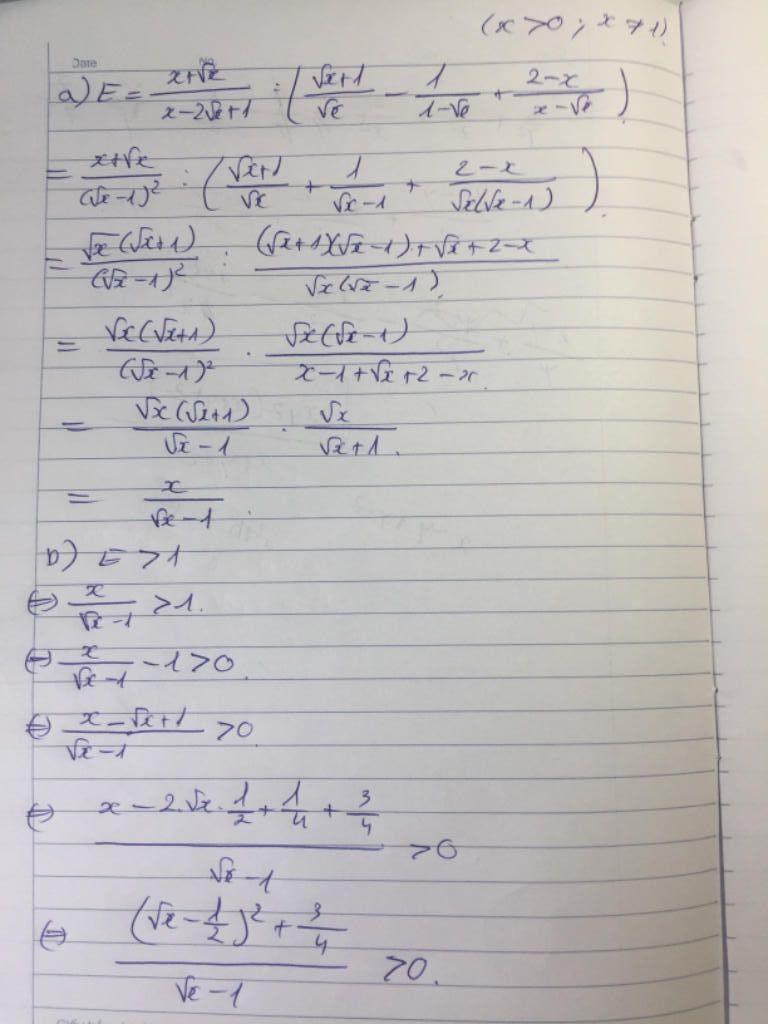 (x > 0 ; x ≠ 1)
Date No
a) E = (x+√x)/(x-2√x+1) : ( (√x+1)/√x - 1/(1-√x) + (2-x)/(x-√x) )
= (x+√x)/(√x-1)² : ( (√x+1)/√x + 1/(√x-1) + (2-x)/(√x(√x-1)) ).
= √x(√x+1)/(√x-1)² : ((√x+1)(√x-1)+√x+2-x)/(√x(√x-1)).
= √x(√x+1)/(√x-1)² . √x(√x-1)/(x-1+√x+2-x).
= √x(√x+1)/(√x-1) . √x/(√x+1).
= x/(√x-1).
b) E > 1
⇔ x/(√x-1) > 1.
⇔ x/(√x-1) - 1 > 0.
⇔ (x-√x+1)/(√x-1) > 0
⇔ (x - 2.√x.1/2 + 1/4 + 3/4)/(√x-1) > 0
⇔ ((√x - 1/2)² + 3/4)/(√x-1) > 0.